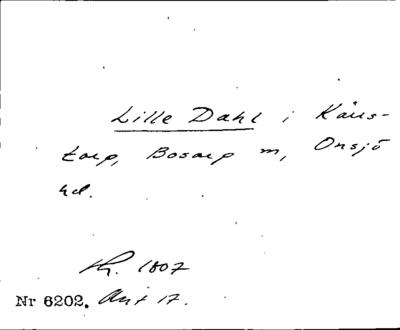 Lille Dahl i Käns-
torp, Bosarp m, Onsjö
hd.
Th. 1807
Nr 6202. Akt 17.